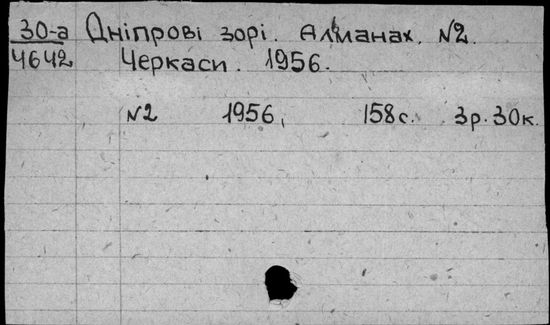 30-а Дніпрові зорі. Алманах. №2.
4642 Черкаси. 1956.
№2 1956, 158с. 3р.30к.